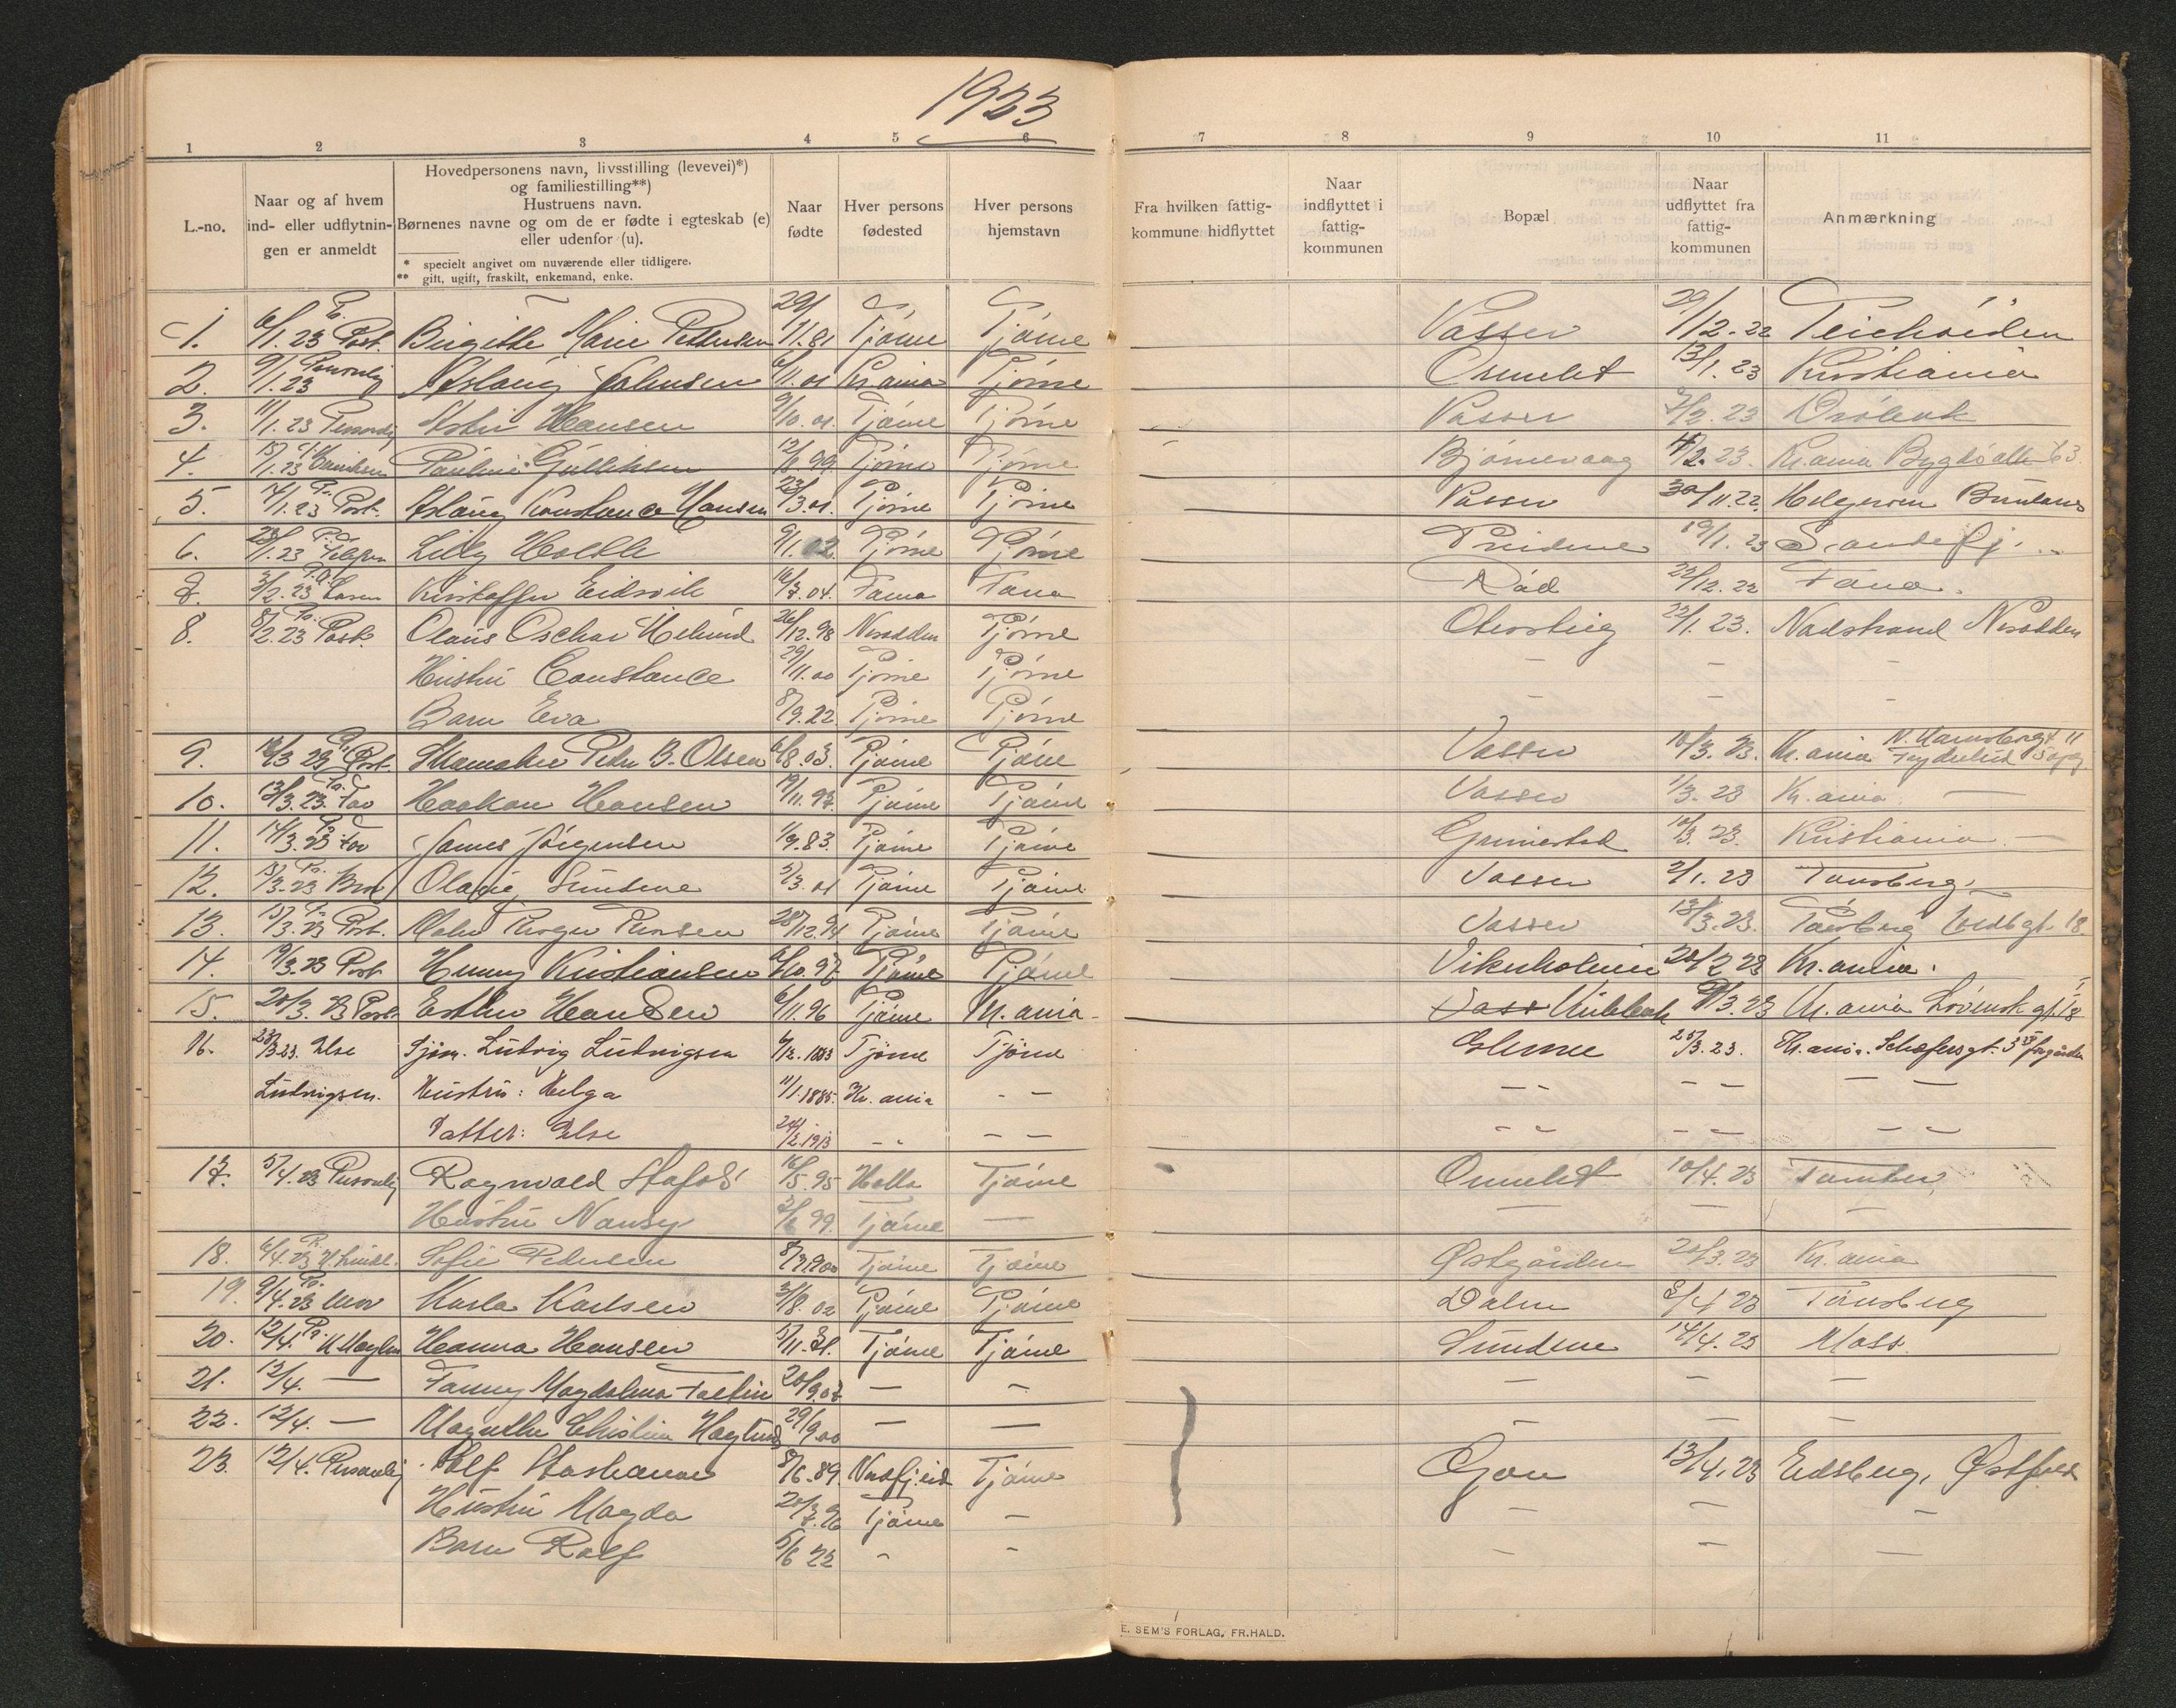 1923
1 2 3 4 5 6 7 8 9 10 11
L.-no.
Naar og af hvem
ind- eller udflytnin-
gen er anmeldt
Hovedpersonens navn, livsstilling (levevei)*)
og familiestilling**)
Hustruens navn.
Børnenes navne og om de er fødte i egteskab (e)
eller udenfor (u).
* specielt angivet om nuværende eller tidligere.
** gift, ugift, fraskilt, enkemand, enke.
Naar
fødte
Hver persons
fødested
Hver persons
hjemstavn
Fra hvilken fattig-
kommune hidflyttet
Naar
indflyttet i
fattig-
kommunen
Bopæl
Naar
udflyttet fra
fattig-
kommunen
Anmærkning
1. 6/1.23 Pr. Post. Birgitte Marie Pettersen 29/11.81 Tjøme Tjøme Vasser 29/12.22 Teichøiden
2. 9/1.23 Personlig Aslaug Johnsen 6/11.01 Kr.ania Tjøme Ormelet 13/1.23 Kristiania
3. 11/1.23 Personlig Hansen 9/10.01. Tjøme Tjøme Vasser 2/2.23 Drøbak
4. 15/1.23 Pauline Gulliksen 12/8.99 Tjøme Tjøme Bjørnevaag 4/2.23. Kr.ania Bygdø alle 63
5. 17/1.23 Pr. Post. Aslaug Konstance Hansen 23/3.01. Tjøme Tjøme Vasser 30/11.22. Helgeroen Brunlanes
6. 23/1.23 Pr. Telefon Lilly Holtle 9/1.02. Tjøme Tjøme 19/1.23 Sandefj.
8. 3/2.23 Kristoffer Eidsvik 16/7.04. Fana Fana Rød 22/12.22 Fana.
8. 8/2.23 Pr. Post. Olaus Oschar Hilund 26/12.98 Nesodden Tjøme 22/1.23. Nadstrand Nesodden
Hustru Constance 29/11.00 Tjøme Tjøme - - -
Barn Eva 8/9.22 Tjøme Tjøme - - -
9. 12/3 23 Pr. Post. Skomaker Peder B. Olsen 6/8.03. Tjøme Tjøme Vasser 10/3.23. Kr.ania
10. 13/3.23. Pr. Far Haakon Hansen 19/11.97. Tjøme Tjøme Vasser 1/3.23 Kr.ania. —
11. 14/3.23 Pr. Far James Jørgensen 1/9.83. Tjøme Tjøme Grimestad 10/3.23. Kristiania —
12. 15/3.23 Pr. Bror Olaug Sundene 5/3.01 Tjøme Tjøme Vasser 2/1.23 Tønsberg.
13. 15/3.23 Pr. Post. 28/12.94 Tjøme Tjøme Vasser 13/3.23. Tønsberg 18.
14. 19/3.23 Post Henny Kristiansen 6/10.97 Tjøme Tjøme Vikerholmen 20/2 23 Kr.ania.
15. 20/3.23 Post. Esther Hansen 6/11.96 Tjøme Kr.ania Kr.ania Løvensk gt. 18
16. 23/3.23. Else Sjøm. Ludvig Ludvigsen 6/12.1883 Tjöme Tjöme Glenne 25/3.23. Kr.ania. Schæfersgt. 5
Ludvigsen. Hustru: Helga 11/1.1885. Kr. ania - - - - - - - -
Datter: Else 24/2.1913 - - - - - - - - - -
17. 5/4.23 Personlig Ragnvald 16/5.95 Holla Tjøme Ormelet 10/4.23
Hustru Nansy 2/6 99. Tjøme — — — —
18. 6/4.23 Sofie Pedersen 8/7.1900 Tjøme Tjøme Østgården 20/3.23 Kr.ania
19. 9/4.23 Pr. Mor Karla Karlsen 3/8.02 Tjøme Tjøme Dalen 8/4 23 Tønsberg
20. 12/4. Pr. Hanna Hansen 5/11.81. Tjøme Tjøme Sundene 14/4.23 Moss.
21. 12/4. — Fanny Magdalena 20/9.07 — — — — —
22. 12/4. — 29/9.00 — — — — —
23. 12/4. Personlig Rolf 8/6.89. Tjøme 13/4.23 Eidsberg, Østfold
Hustru Magda 20/7.96 Tjøme — — — —
Barn Rolf 5/6 22 - - — —
E. SEM'S FORLAG, FR.HALD.